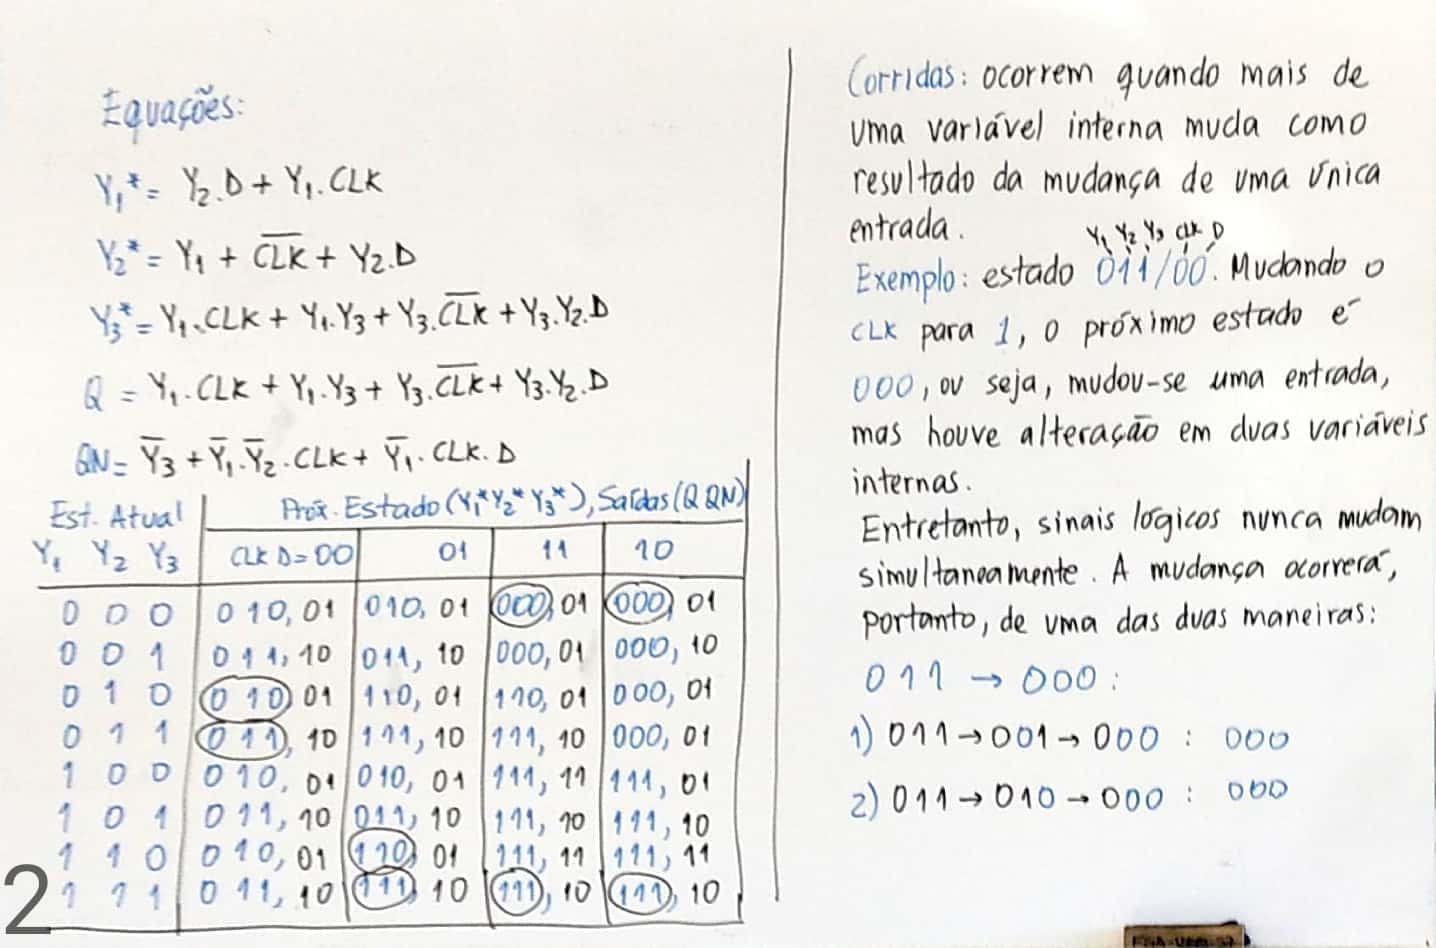 Equações:
Y₁* = Y₂.D + Y₁.CLK
Y₂* = Y₁ + C̅L̅K̅ + Y₂.D
Y₃* = Y₁.CLK + Y₁.Y₃ + Y₃.C̅L̅K̅ + Y₃.Y₂.D
Q = Y₁.CLK + Y₁.Y₃ + Y₃.C̅L̅K̅ + Y₃.Y₂.D
QN = Y̅₃ + Y̅₁.Y̅₂.CLK + Y̅₁.CLK.D
Est. Atual Próx. Estado (Y₁*Y₂*Y₃*), Saídas (Q QN)
Y₁ Y₂ Y₃ CLK D=00 01 11 10
0 0 0 010, 01 010, 01 000, 01 000, 01
0 0 1 011, 10 011, 10 000, 01 000, 10
0 1 0 010, 01 110, 01 110, 01 000, 01
0 1 1 011, 10 111, 10 111, 10 000, 01
1 0 0 010, 01 010, 01 111, 11 111, 01
1 0 1 011, 10 011, 10 111, 10 111, 10
1 1 0 010, 01 110, 01 111, 11 111, 11
1 1 1 011, 10 111, 10 111, 10 111, 10
2
Corridas: ocorrem quando mais de
uma variável interna muda como
resultado da mudança de uma única
entrada.
Y₁ Y₂ Y₃ CLK D
Exemplo: estado 011/00. Mudando o
CLK para 1, o próximo estado é
000, ou seja, mudou-se uma entrada,
mas houve alteração em duas variáveis
internas.
Entretanto, sinais lógicos nunca mudam
simultaneamente. A mudança ocorrerá,
portanto, de uma das duas maneiras:
011 → 000:
1) 011 → 001 → 000 : 000
2) 011 → 010 → 000 : 000